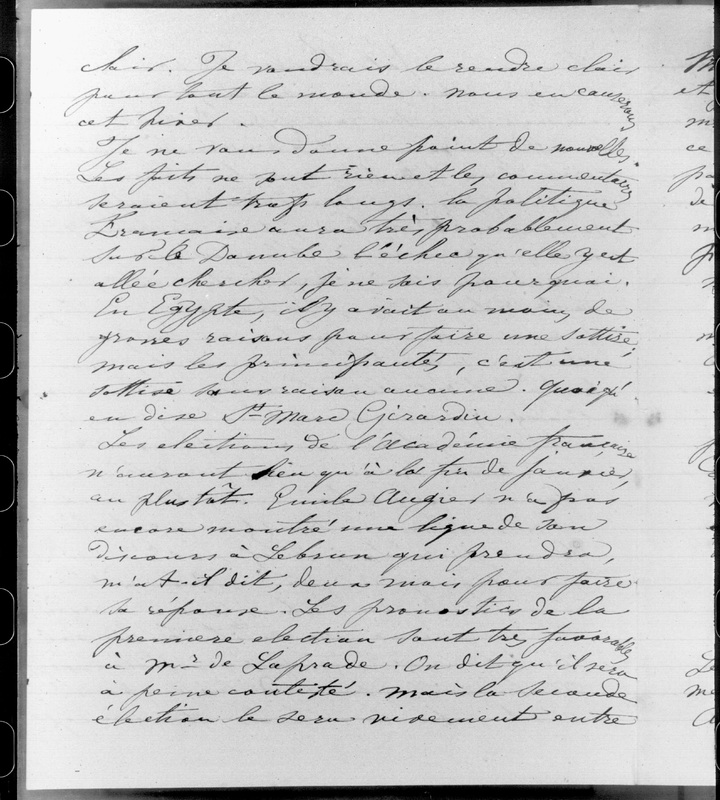 clair. Je voudrais le rendre clair
pour tout le monde. nous en causerons
cet hiver.
Je ne vous donne point de nouvelles.
Les faits ne sont rien et les commentaires
seraient trop longs. la politique
Francaise aura très probablement
sur le Danube l'échec qu'elle y est
allée chercher, je ne sais pourquoi.
En Egypte, il y avait au moins de
grosses raisons pour faire une sottise,
mais les principautés, c'est une
sottise sans raison aucune. quoiqu'
en dise St Marc Girardin.
Les elections de l'académie française
n'auront lieu qu'à la fin de janvier,
au plustôt. Emile Augier n'a pas
encore montré une ligne de son
discours à Lebrun qui prendra,
m'a-t-il dit, deux mois pour faire
sa réponse. Les pronostics de la
premiere election sont tres favorables
à mr de Laprade. On dit qu'il sera
à peine contesté. mais la seconde
élection le sera vivement entre